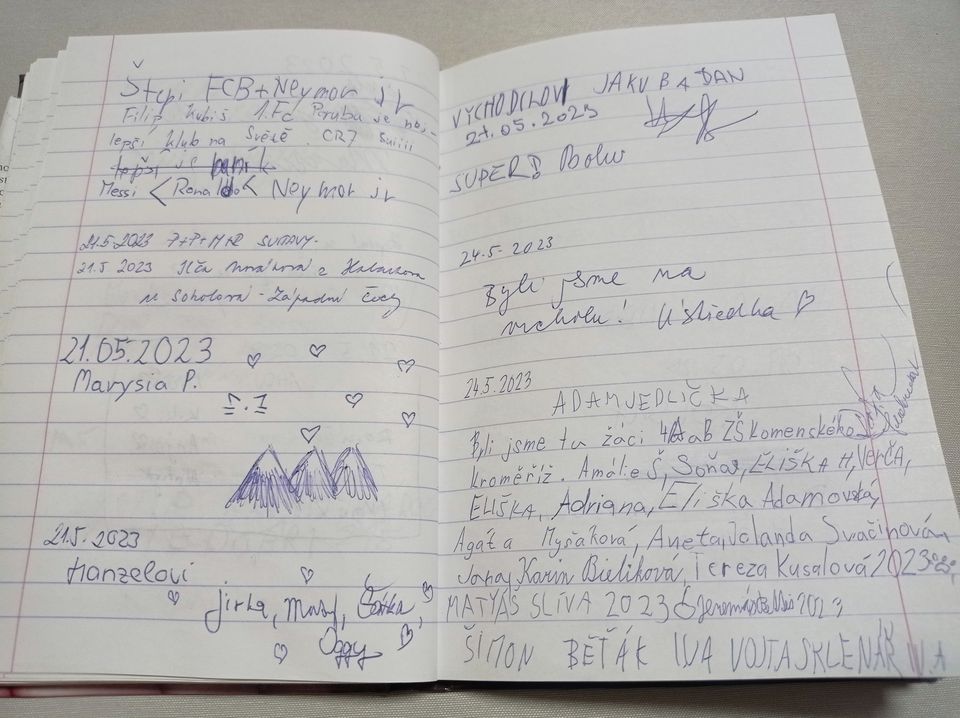 Štepi FCB+Neymor jr
Filip Kubiš 1.Fc Poruba je nej-
lepší klub na Světě. CR7 Suiiii
baník
Messi < Ronaldo < Neymor jr
21.5.2023 P+P+M+R SVITAVY.
21.5 2023 z
u Sokolova - Západní Čechy
21.05.2023
Marysia P.
21.5.2023
Hanzelovi
Jirka, Mary, Čenka,
Oggy
VYCHODILOVI JAKUB & DAN
21.05.2023
SUPER
24.5-2023
Byli jsme na
vrcholu! Ustředka
24.5.2023
ADAM JEDLIČKA
Byli jsme tu žáci 4A a B ZŠ Komenského
Kroměříž. Amálie Š, Soňa, ELIŠKA H, VERČA,
ELIŠKA, Adriana, Eliška Adamovská,
Agáta Myšáková, Aneta, Jolanda Svačinová,
Jana, Karin Bieliková, Tereza Kusalová 2023
MATYÁŠ SLÍVA 2023 2023
ŠIMON BĚŤÁK IVA VOJTA SKLENÁŘ IV.A